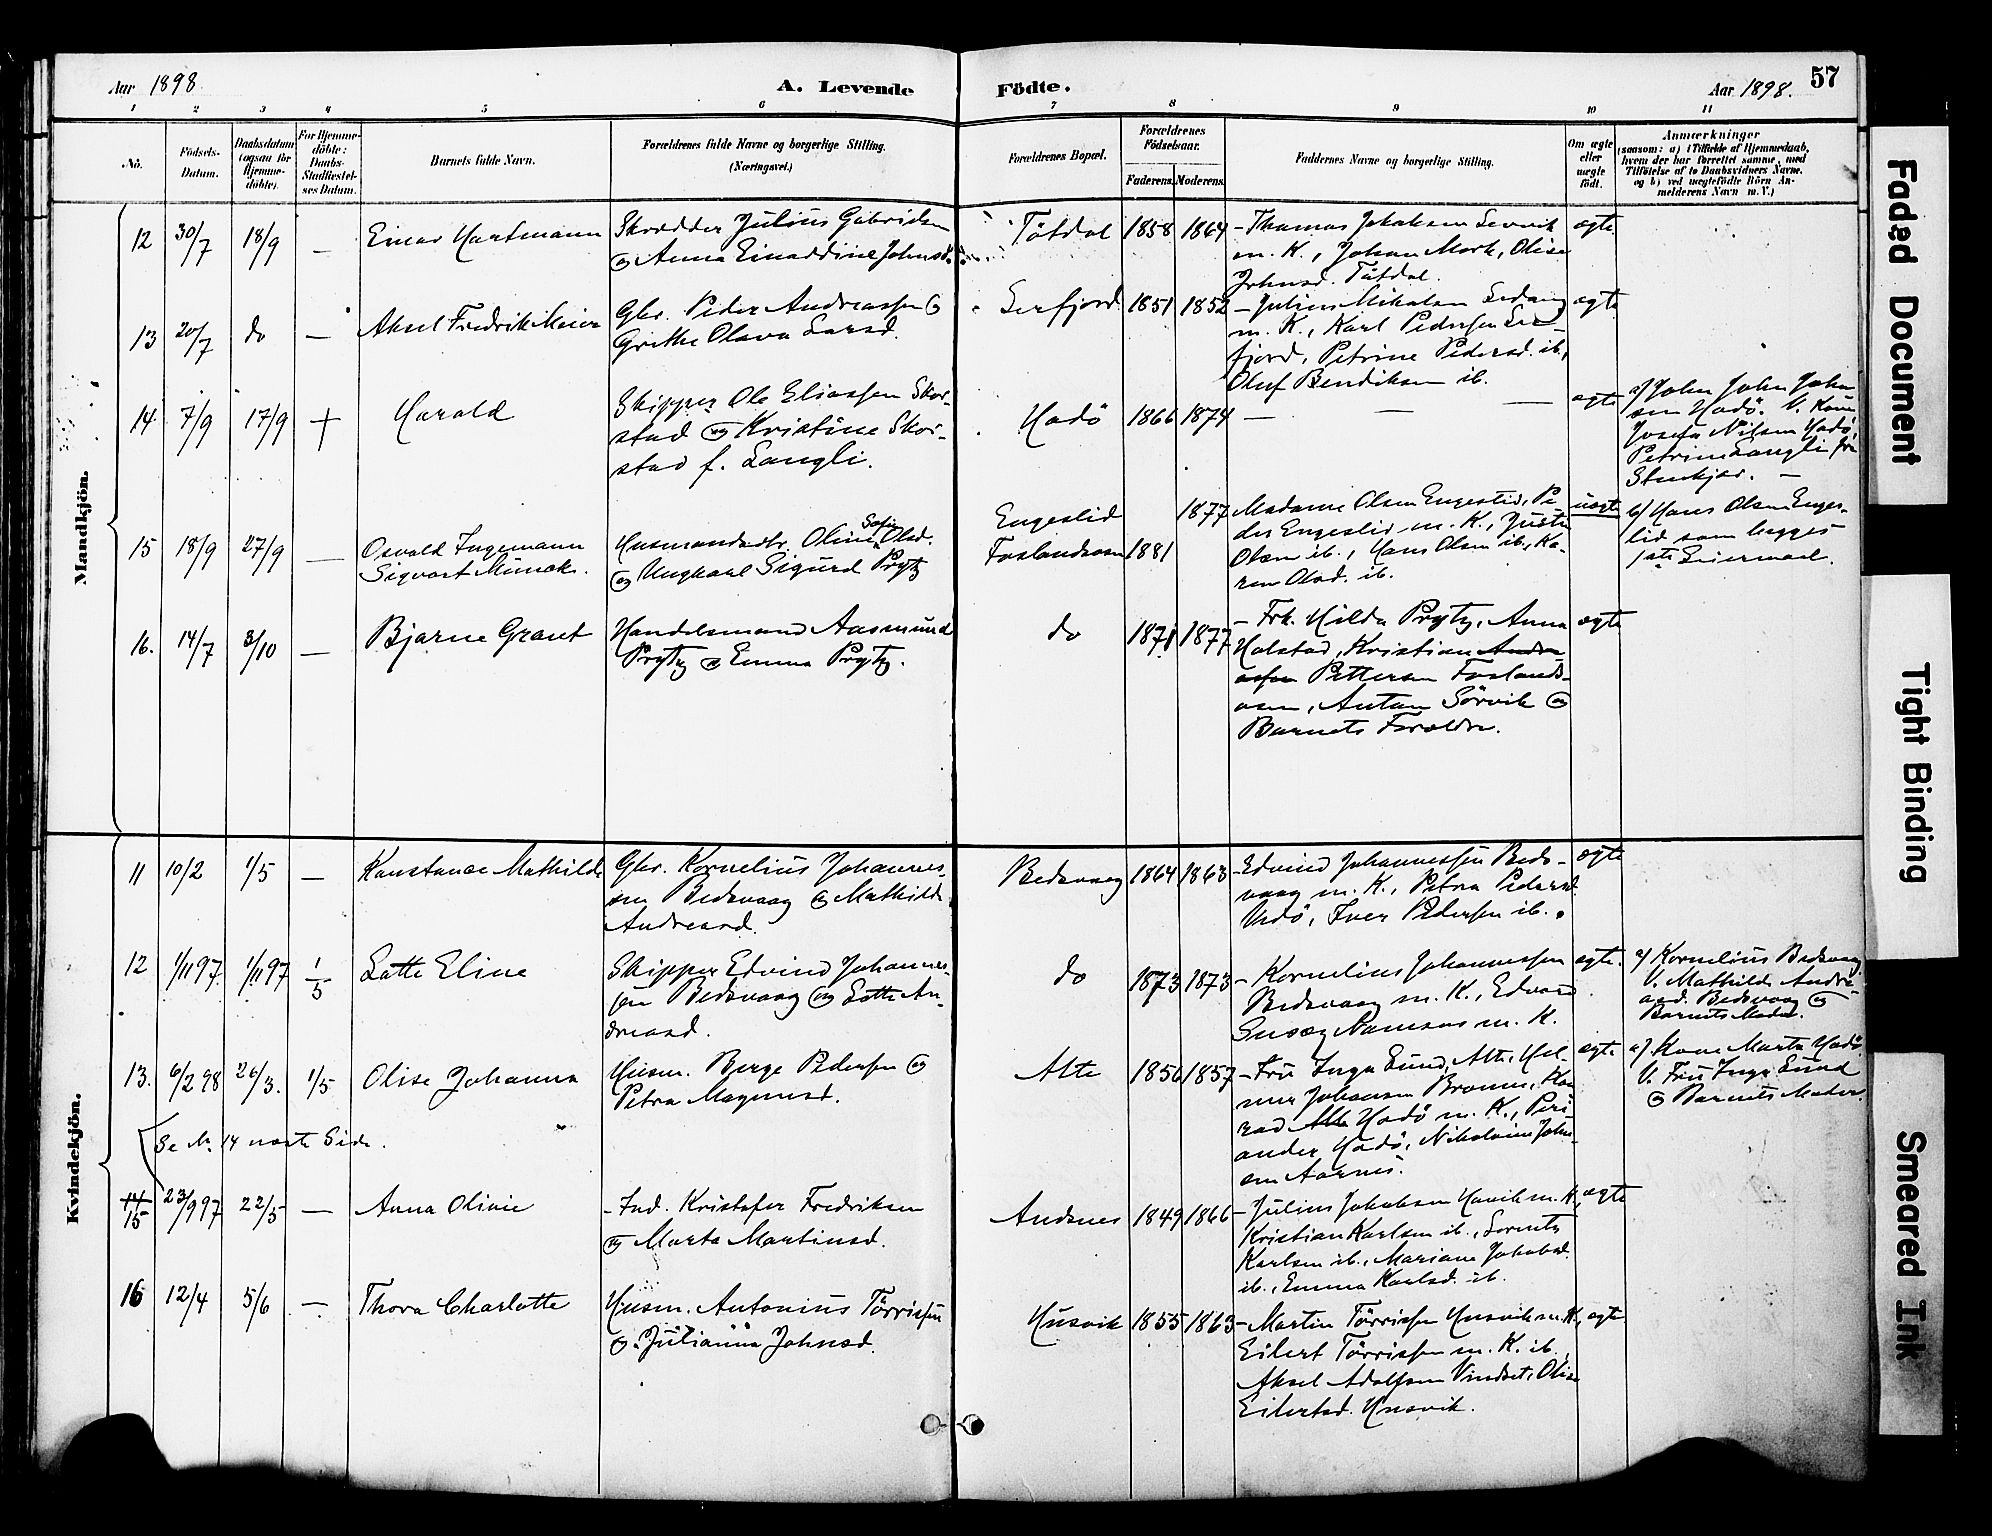 Aar 1898.
A. Levende
Födte.
Aar 1898.
57
1 2 3 4 5 6 7 8 9 10 11
No.
Födsels-
Datum.
Daabsdatum
(ogsaa for
Hjemme-
döbte).
For Hjemme-
döbte:
Daabs-
Stadfæstel-
ses Datum.
Barnets fulde Navn.
Forældrenes fulde Navne og borgerlige Stilling.
(Næringsvei.)
Forældrenes Bopæl.
Forældrenes
Födselsaar.
Faderens. Moderens.
Faddernes Navne og borgerlige Stilling.
Om ægte
eller
uægte
födt.
Anmærkninger
(saasom: a) i Tilfælde af Hjemmedaab,
hvem der har forrettet samme, med
Tilföielse af to Daabsvidners Navne.
og b) ved uægtefödte Börn An-
melderens Navn m. V.)
Mandkjön.
12 30/7 18/9 —
Einar Hartmann
Skrædder Julius Gabrielsen
og Anna Einaddine Johnsd.
Tötdal 1858 1864
- Thomas Jakobsen
m. K., Johan Mork, Olise
Johnsd. Tötdal.
ægte
13 20/7 do —
Aksel Fredrik Meier
Gbr. Peder Andreassen og
Grethe Olava Larsd.
Serfjord 1851 1852
- Julius Mikalsen
m. K., Karl Pedersen Ser-
fjord, Petrine Pedersd. ib.,
Oluf Bendiksen ib.
ægte
14 7/9 17/9 +
Harald
Skipper Ole Eliassen Skor-
stad og Kristine Skor-
stad f. Langli.
Hadö 1866 1874
— — —
ægte
a) John John John-
sen Hadö. V. Kone
Josefa Nilsen Hadö,
Petrine Langli fra
Stenkjær. —
15 18/9 27/9 —
Osvald Ingemann
Sigvart Minæk.
Husmandsdtr. Oline Sofie Olsd.
og Ungkarl Sigurd Prytz
Engeslid
Foslandsosen 1881
1877
Madame Olsen Engeslid, Pe-
der Engeslid m. K.,
Olsen ib., Hans Olsen ib., Ka-
ren Olsd. ib.
uægte
b) Hans Olsen Enges-
lid som begges
1ste Leiermaal.
16. 14/7 3/10 —
Bjarne Grant
Handelsmand Aasmund
Prytz og Emma Prytz.
do 1871 1877
- Frk. Hilda Prytz, Anna
Holstad, Kristian Andre-
assen Pettersen Foslands-
osen, Anton Sörvik og
Barnets Forældre.
ægte
Kvindekjön.
11 10/2 1/5 —
Konstance Mathilde
Gbr. Kornelius Johannes-
sen Bedsvaag og Mathilde
Andreasd.
Bedsvaag 1864 1863
- Edvind Johannessen Beds-
vaag m. K., Petra Pedersd.
Hadö, Iver Pedersen ib.
ægte
12 1/11 97. 1/11 97 1/5
Lotte Eline
Skipper Edvind Johannes-
sen Bedsvaag og Lotte An-
dreasd.
do 1873 1873
- Kornelius Johannessen
Bedsvaag m. K., Edvard
Namsos m. K.
ægte.
a) Kornelius Bedsvaag
V. Mathilde Andre-
asd. Bedsvaag og
Barnets Moder.
13. 6/2 98 26/3. 1/5
Olise Johanna
Husm. Berge Pedersen og
Petra Magnusd.
Alte 1856 1857
- Fru Inga Lund, Alte, Hel-
mer Johansen Bronnes, Kon-
rad Alte Hadö m. K., Peri-
ander Hadö, Nikoline John-
sen Aarnes.
ægte
a) Kone Marta Hadö
V. Fru Inga Lund
og Barnets Moder.
Se No. 14 næste Side.
14
15 23/9 97 22/5 —
Anna Olivie
- Ind. Kristofer Fredriksen
og Marta Martinsd.
Andsnes 1849 1866
- Julius Jakobsen Havik m. K.,
Kristian Karlsen ib., Lorents
Karlsen ib., Mariane Jakobsd.
ib., Emma Karlsd. ib.
ægte
16 12/4 5/6 —
Thora Charlotte
Husm. Antonius Törrissen
og Julianna Johnsd.
Husvik 1855 1863
- Martin Törrissen Husvik m. K.,
Eilert Törrissen m. K. ib.,
Aksel Adolfsen Vindset, Olise
Eilertsd. Husvik.
ægte
Faded Document
Tight Binding
Smeared Ink